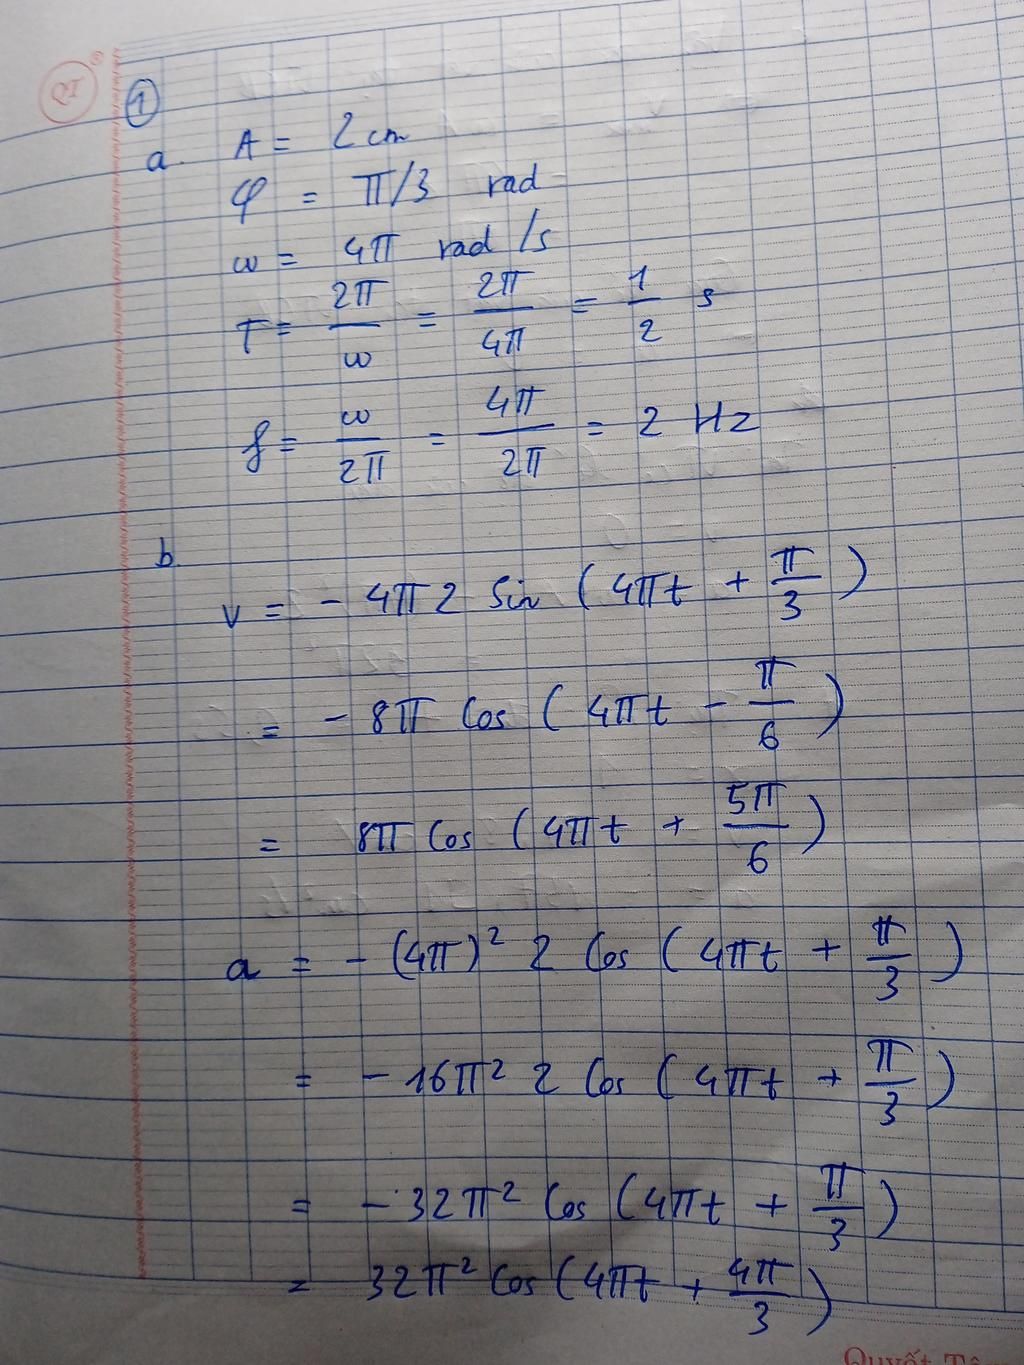 QT
1
a. A = 2 cm
φ = π/3 rad
ω = 4π rad/s
T = 2π/ω = 2π/4π = 1/2 s
f = ω/2π = 4π/2π = 2 Hz
b.
v = - 4π 2 Sin (4πt + π/3)
= - 8π Cos (4πt - π/6)
= 8π Cos (4πt + 5π/6)
a = - (4π)² 2 Cos (4πt + π/3)
= - 16π² 2 Cos (4πt + π/3)
= - 32π² Cos (4πt + π/3)
= 32π² Cos (4πt + 4π/3)
Quyết Tâm